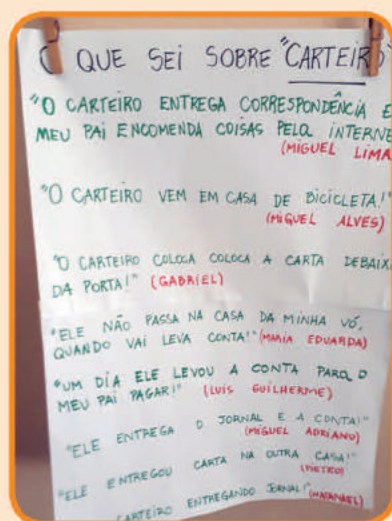 O QUE SEI SOBRE "CARTEIRO"
"O CARTEIRO ENTREGA CORRESPONDÊNCIA E
MEU PAI ENCOMENDA COISAS PELA INTERNE
(MIGUEL LIMA
"O CARTEIRO VEM EM CASA DE BICICLETA!"
(MIGUEL ALVES)
"O CARTEIRO COLOCA COLOCA A CARTA DEBAIX
DA PORTA!" (GABRIEL)
"ELE NÃO PASSA NA CASA DA MINHA VÓ,
QUANDO VAI LEVA CONTA!" (MARIA EDUARDA)
"UM DIA ELE LEVOU A CONTA PARA O
MEU PAI PAGAR!" (LUIS GUILHERME)
"ELE ENTREGA O JORNAL E A CONTA!"
(MIGUEL ADRIANO)
"ELE ENTREGOU CARTA NA OUTRA CASA!"
(PIETRO)
CARTEIRO ENTREGANDO JORNAL!" (NATANAEL)